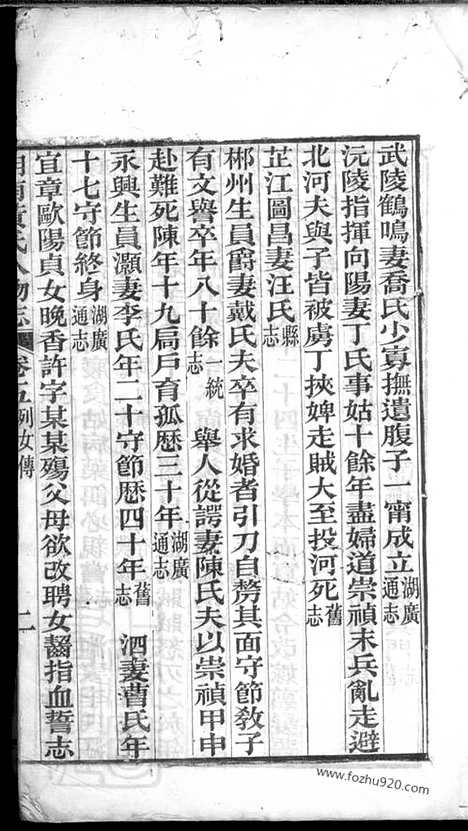 武陵鶴鳴妻喬氏少寡撫遺腹子一甯成立湖廣通志
沅陵指揮向陽妻丁氏事姑十餘年盡婦道崇禎末兵亂走避
北河夫與子皆被虜丁挾婢走賊大至投河死舊志
芷江圖昌妻汪氏縣志
郴州生員爵妻戴氏夫卒有求婚者引刀自剺其面守節敎子
有文譽卒年八十餘一統志 舉人從諤妻陳氏夫以崇禎甲申
赴難死陳年十九扃戶育孤歷三十年湖廣通志
永興生員灝妻李氏年二十守節歷四十年舊志 泗妻曹氏年
十七守節終身湖廣通志
宜章歐陽貞女晚香許字某某殤父母欲改聘女齧指血誓志
人物志 卷五列女傳 二
www.fozhu920.com